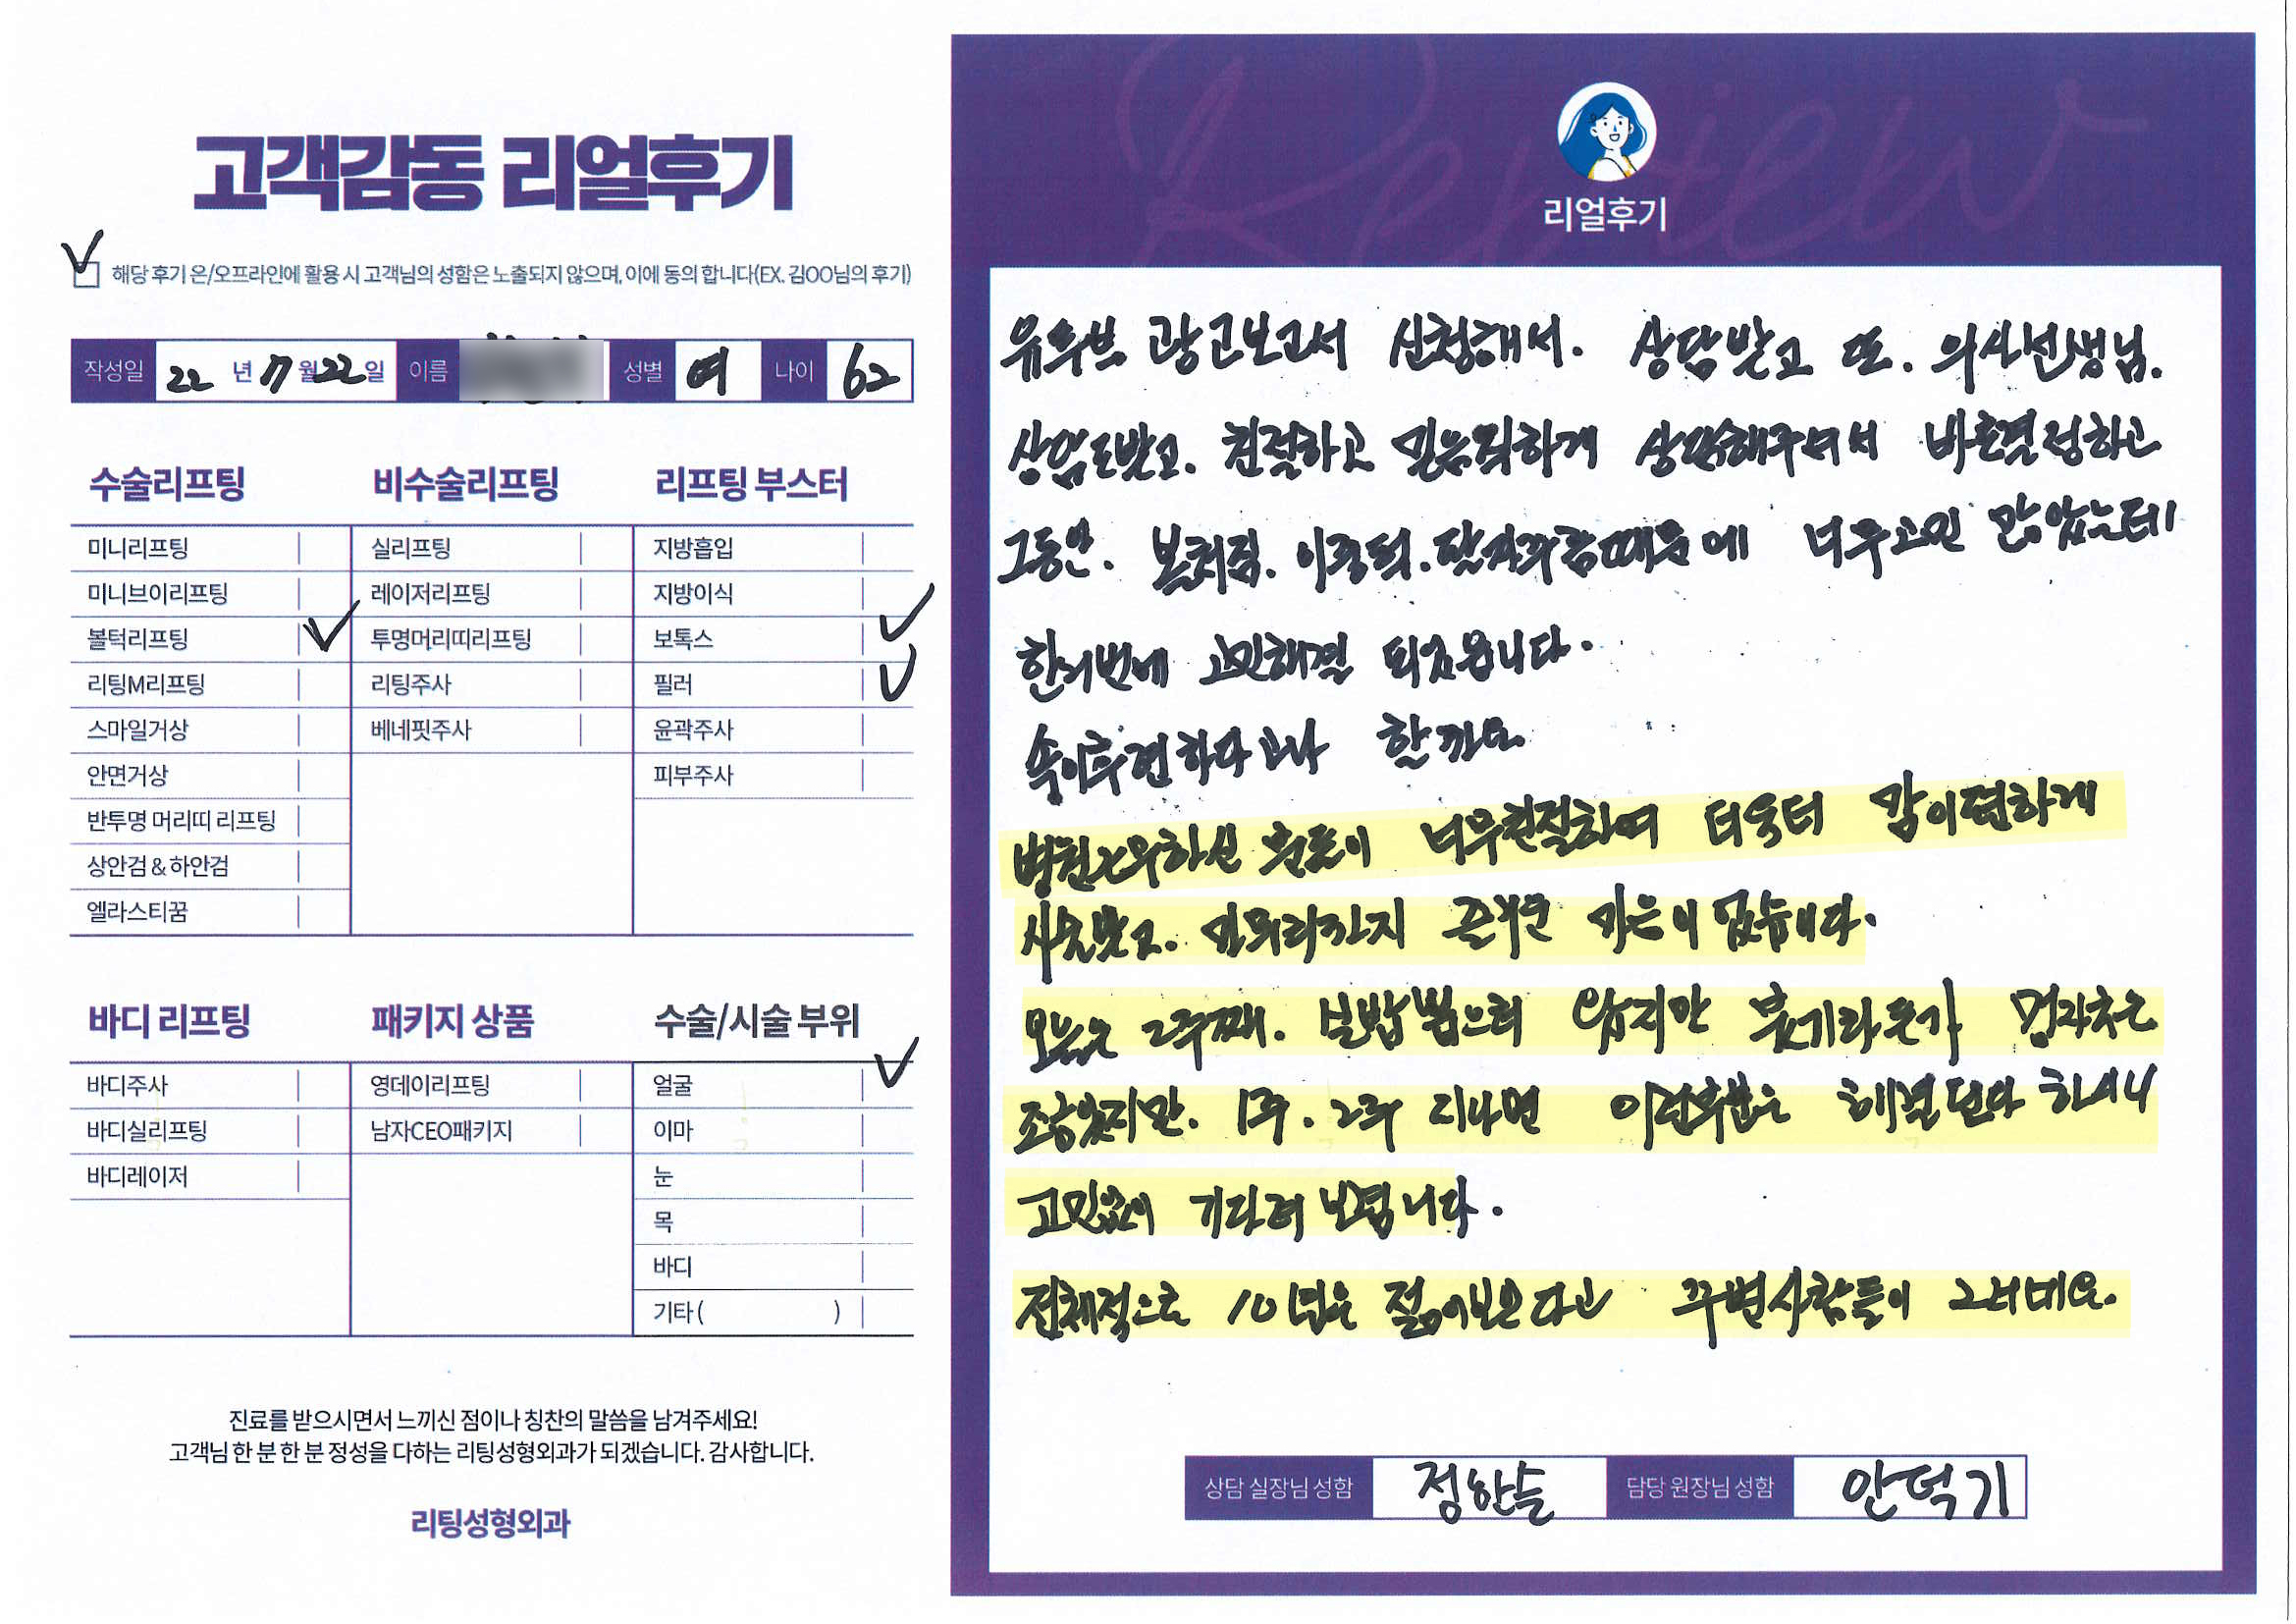 고객감동 리얼후기
해당 후기 온/오프라인에 활용 시 고객님의 성함은 노출되지 않으며, 이에 동의 합니다(EX. 김OO님의 후기)
작성일 22 년 7 월 22 일 이름 성별 여 나이 62
수술리프팅
미니리프팅
미니브이리프팅
볼턱리프팅
리팅M리프팅
스마일거상
안면거상
반투명 머리띠 리프팅
상안검 & 하안검
엘라스티꿈
비수술리프팅
실리프팅
레이저리프팅
투명머리띠리프팅
리팅주사
베네핏주사
리프팅 부스터
지방흡입
지방이식
보톡스
필러
윤곽주사
피부주사
바디 리프팅
바디주사
바디실리프팅
바디레이저
패키지 상품
영데이리프팅
남자CEO패키지
수술/시술 부위
얼굴
이마
눈
목
바디
기타 ( )
진료를 받으시면서 느끼신 점이나 칭찬의 말씀을 남겨주세요!
고객님 한 분 한 분 정성을 다하는 리팅성형외과가 되겠습니다. 감사합니다.
리팅성형외과
Review
리얼후기
유튜브 광고보고서 신청해서. 상담받고 또. 의사선생님.
상담도받고. 친절하고 믿음직하게 상담해주셔서 바로결정하고
그동안. 볼처짐. 이중턱. 팔자주름때문에 너무고민 많았는데
한번에 고민해결 되었읍니다.
속이후련하다고나 할까요
너무친절하여 더욱더 맘이편하게
시술받고. 마무리까지 즐거운 마음이였습니다.
오늘은 2주째. 실밥뽑으러 왔지만 붓기라든가 멍자국은
조금있지만. 1주. 2주 지나면 이런부분은 해결된다 하시니
고민없이 기다려 보렵니다.
전체적으로 10년은 젊어보인다고 주변사람들이 그러네요.
상담 실장님 성함 정한슬 담당 원장님 성함 안덕기